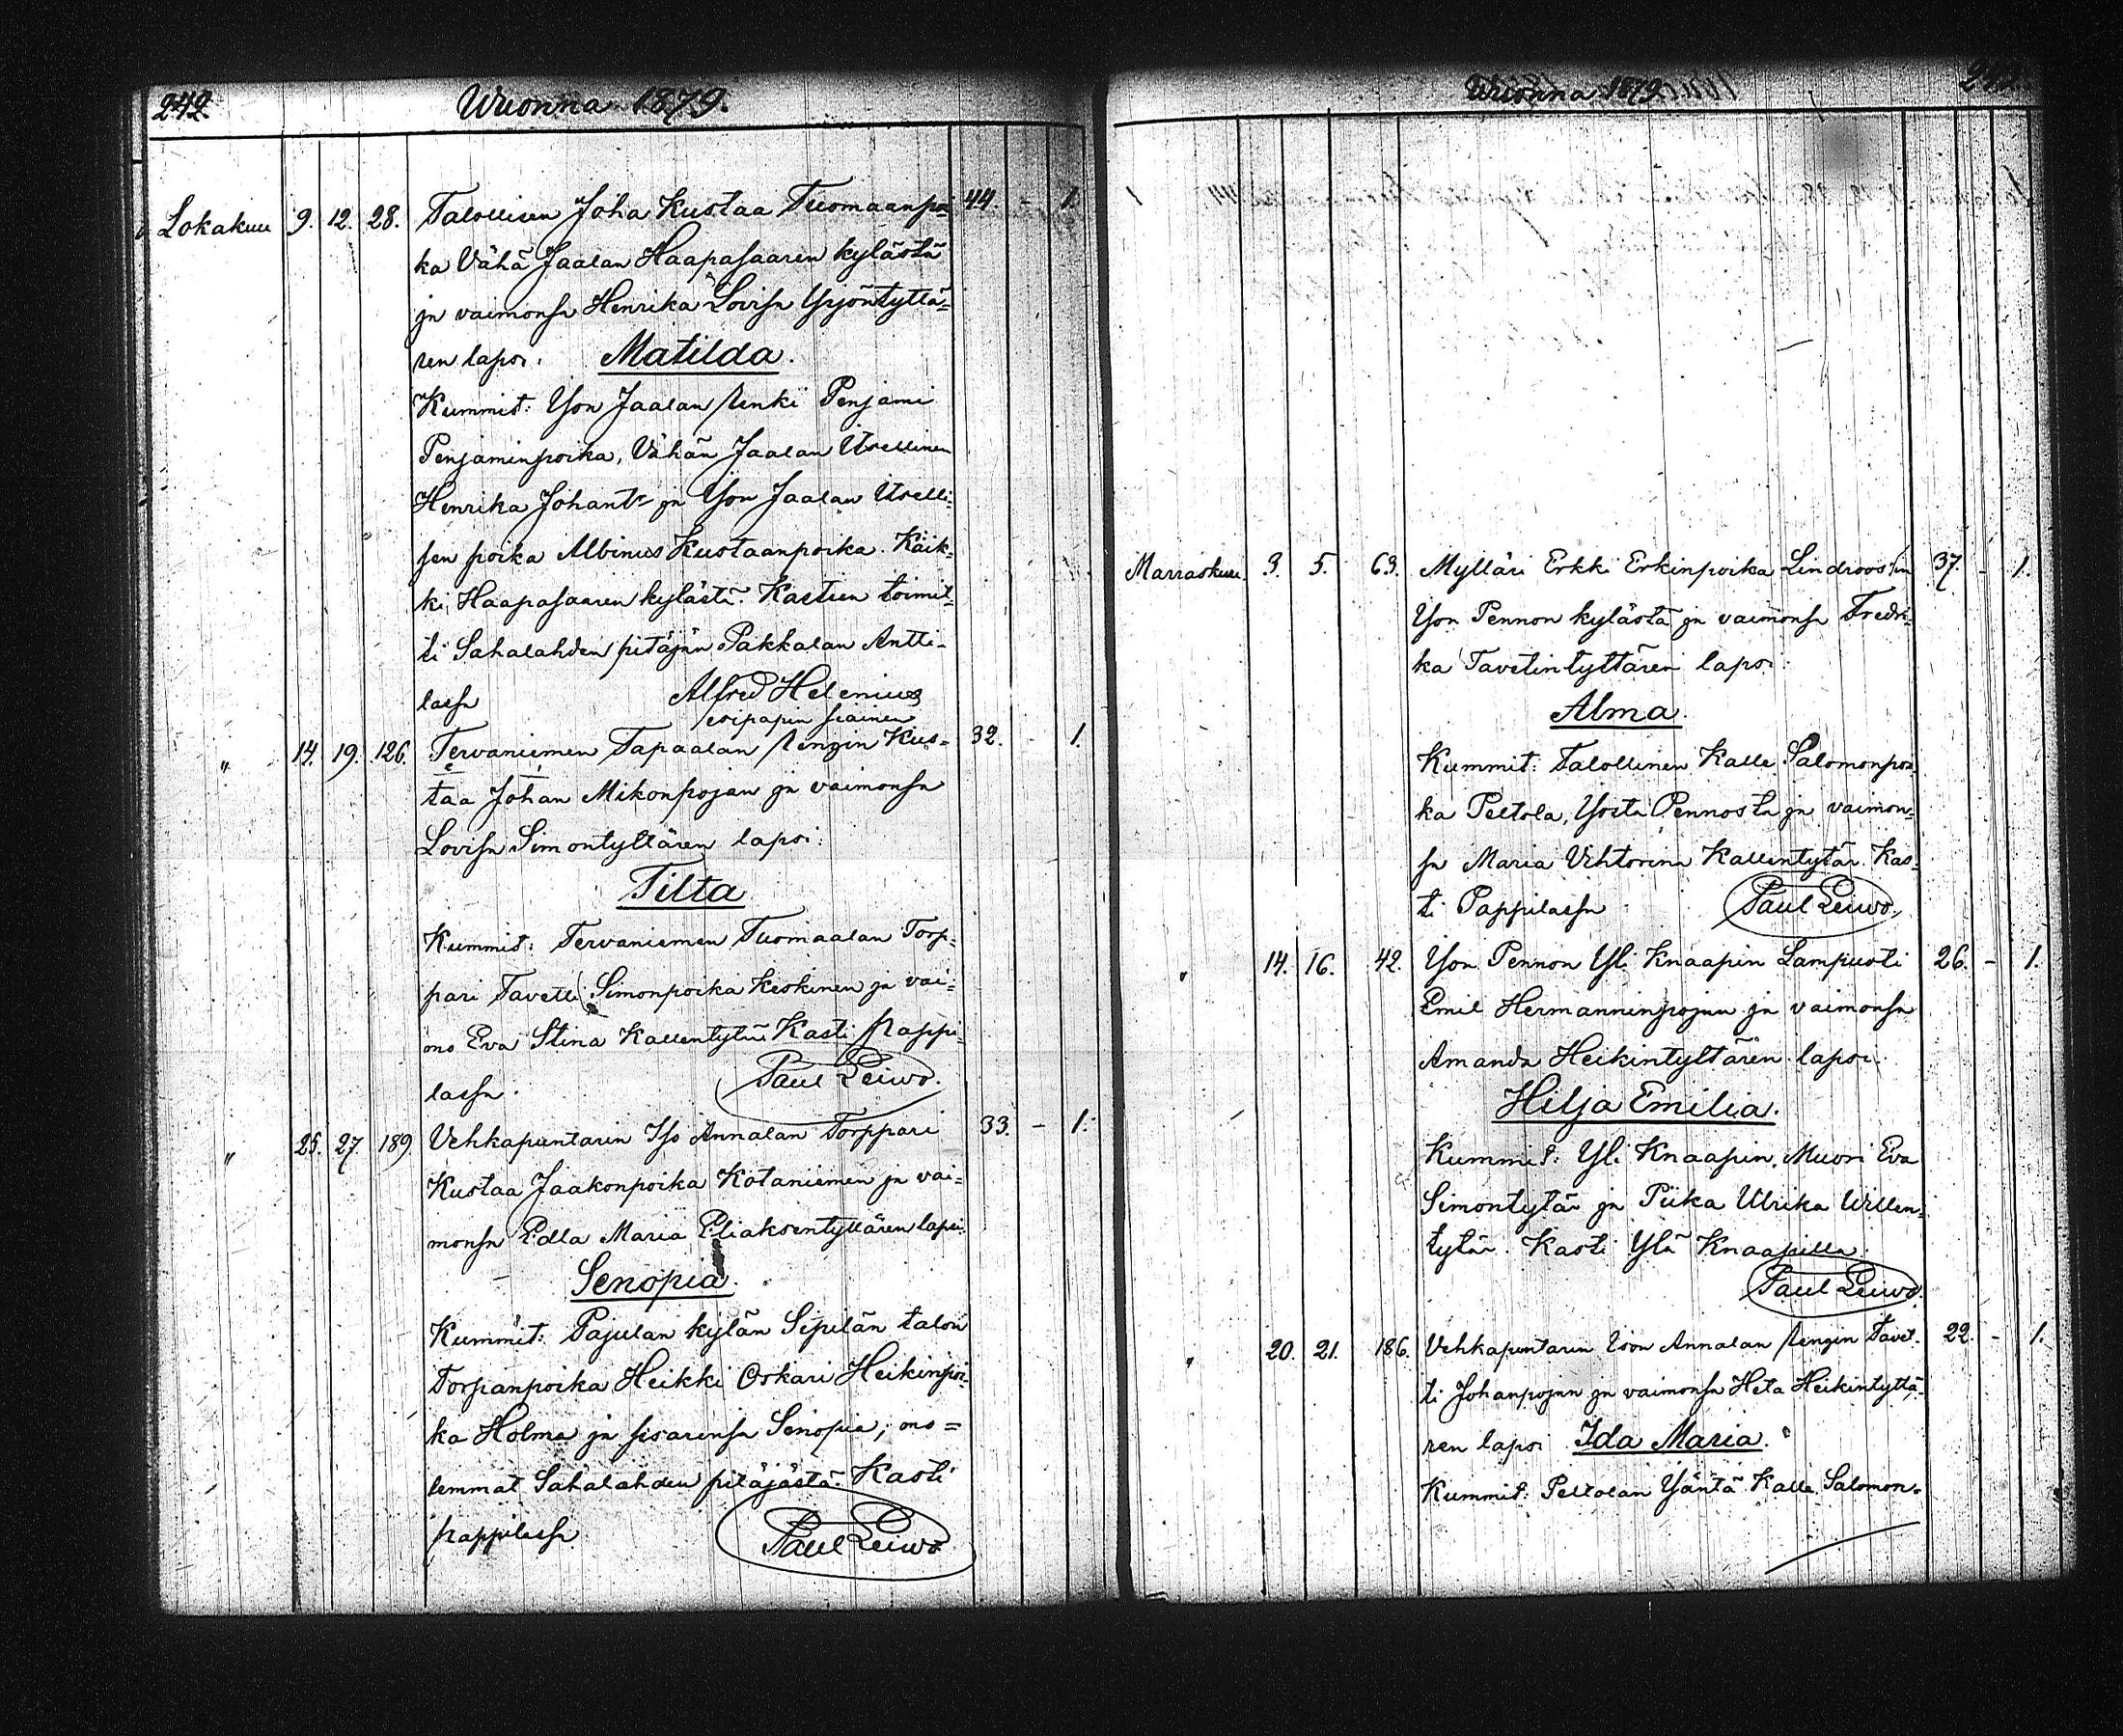 242. Wuonna 1879.
Lokakuu 9. 12. 28. Talollisen Joha Kustaa Tuomaanpoi- 44. - 1.
ka Vähä Jaalan Haapasaaren kylästä
ja vaimonsa Henrika Lovisa Yrjöntyttä=
ren lapsi: Matilda.
Kummit: Ison Jaalan renki Penjami
Penjaminpoika, Vähän Jaalan Itsellinen
Henrika Johantr ja Ison Jaalan Itselli=
sen poika Albinus Kustaanpoika. Kaik=
ki Haapasaaren kylästä. Kasteen toimit=
ti Sahalahden pitäjän Pakkalan Antti-
lassa Alfred Helenius
" 14. 19. 126. Tervaniemen Tapaalan rengin Kus= 32. 1.
taa Johan Mikonpojan ja vaimonsa
Lovisa Simontyttären lapsi:
Tilta
Kummit: Tervaniemen Tuomaalan Torp=
pari Tavetti Simonpoika Keskinen ja vai=
mo Eva Stina Kallentytär Kasti Pappi=
lassa. Paul Leiwo.
" 25. 27. 189. Vehkapuntarin Iso Annalan Torppari 33. - 1.
Kustaa Jaakonpoika Kotaniemen ja vai=
monsa Edla Maria Eliaksentyttären lapsi.
Senopia.
Kummit: Pajulan kylän Sipilän talon
Torpanpoika Heikki Oskari Heikinpoi-
ka Holma ja sisarensa Senopia, mo=
lemmat Sahalahden pitäjästä. Kasti
pappilassa Paul Leiwo
Wuonna 1879.
Marraskuu. 3. 5. 63. Mylläri Erkki Erkinpoika Lindroos'in 37. - 1.
Ison Pennon kylästä ja vaimonsa Fredri-
ka Tavetintyttären lapsi:
Alma.
Kummit: Talollinen Kalle Salomonpoi-
ka Peltola, Isosta Pennosta ja vaimon=
sa Maria Vihtorina Kallentytär. Kas-
ti Pappilassa. Paul Leiwo.
" 14. 16. 42. Ison Pennon Yli Knaapin Lampuoti 26. - 1.
Emil Hermanninpojan ja vaimonsa
Amanda Heikintyttären lapsi.
Hilja Emilia.
Kummit: Yli Knaapin Muori Eva
Simontytär ja Piika Ulrika Willen=
tytär. Kasti Ylä Knaapilla.
Paul Leiwo.
" 20. 21. 186. Vehkapuntarin Ison Annalan rengin Tavet- 22. - 1.
ti Johanpojan ja vaimonsa Heta Heikintyttä-
ren lapsi Ida Maria.
Kummit: Peltolan Isäntä Kalle Salomon-